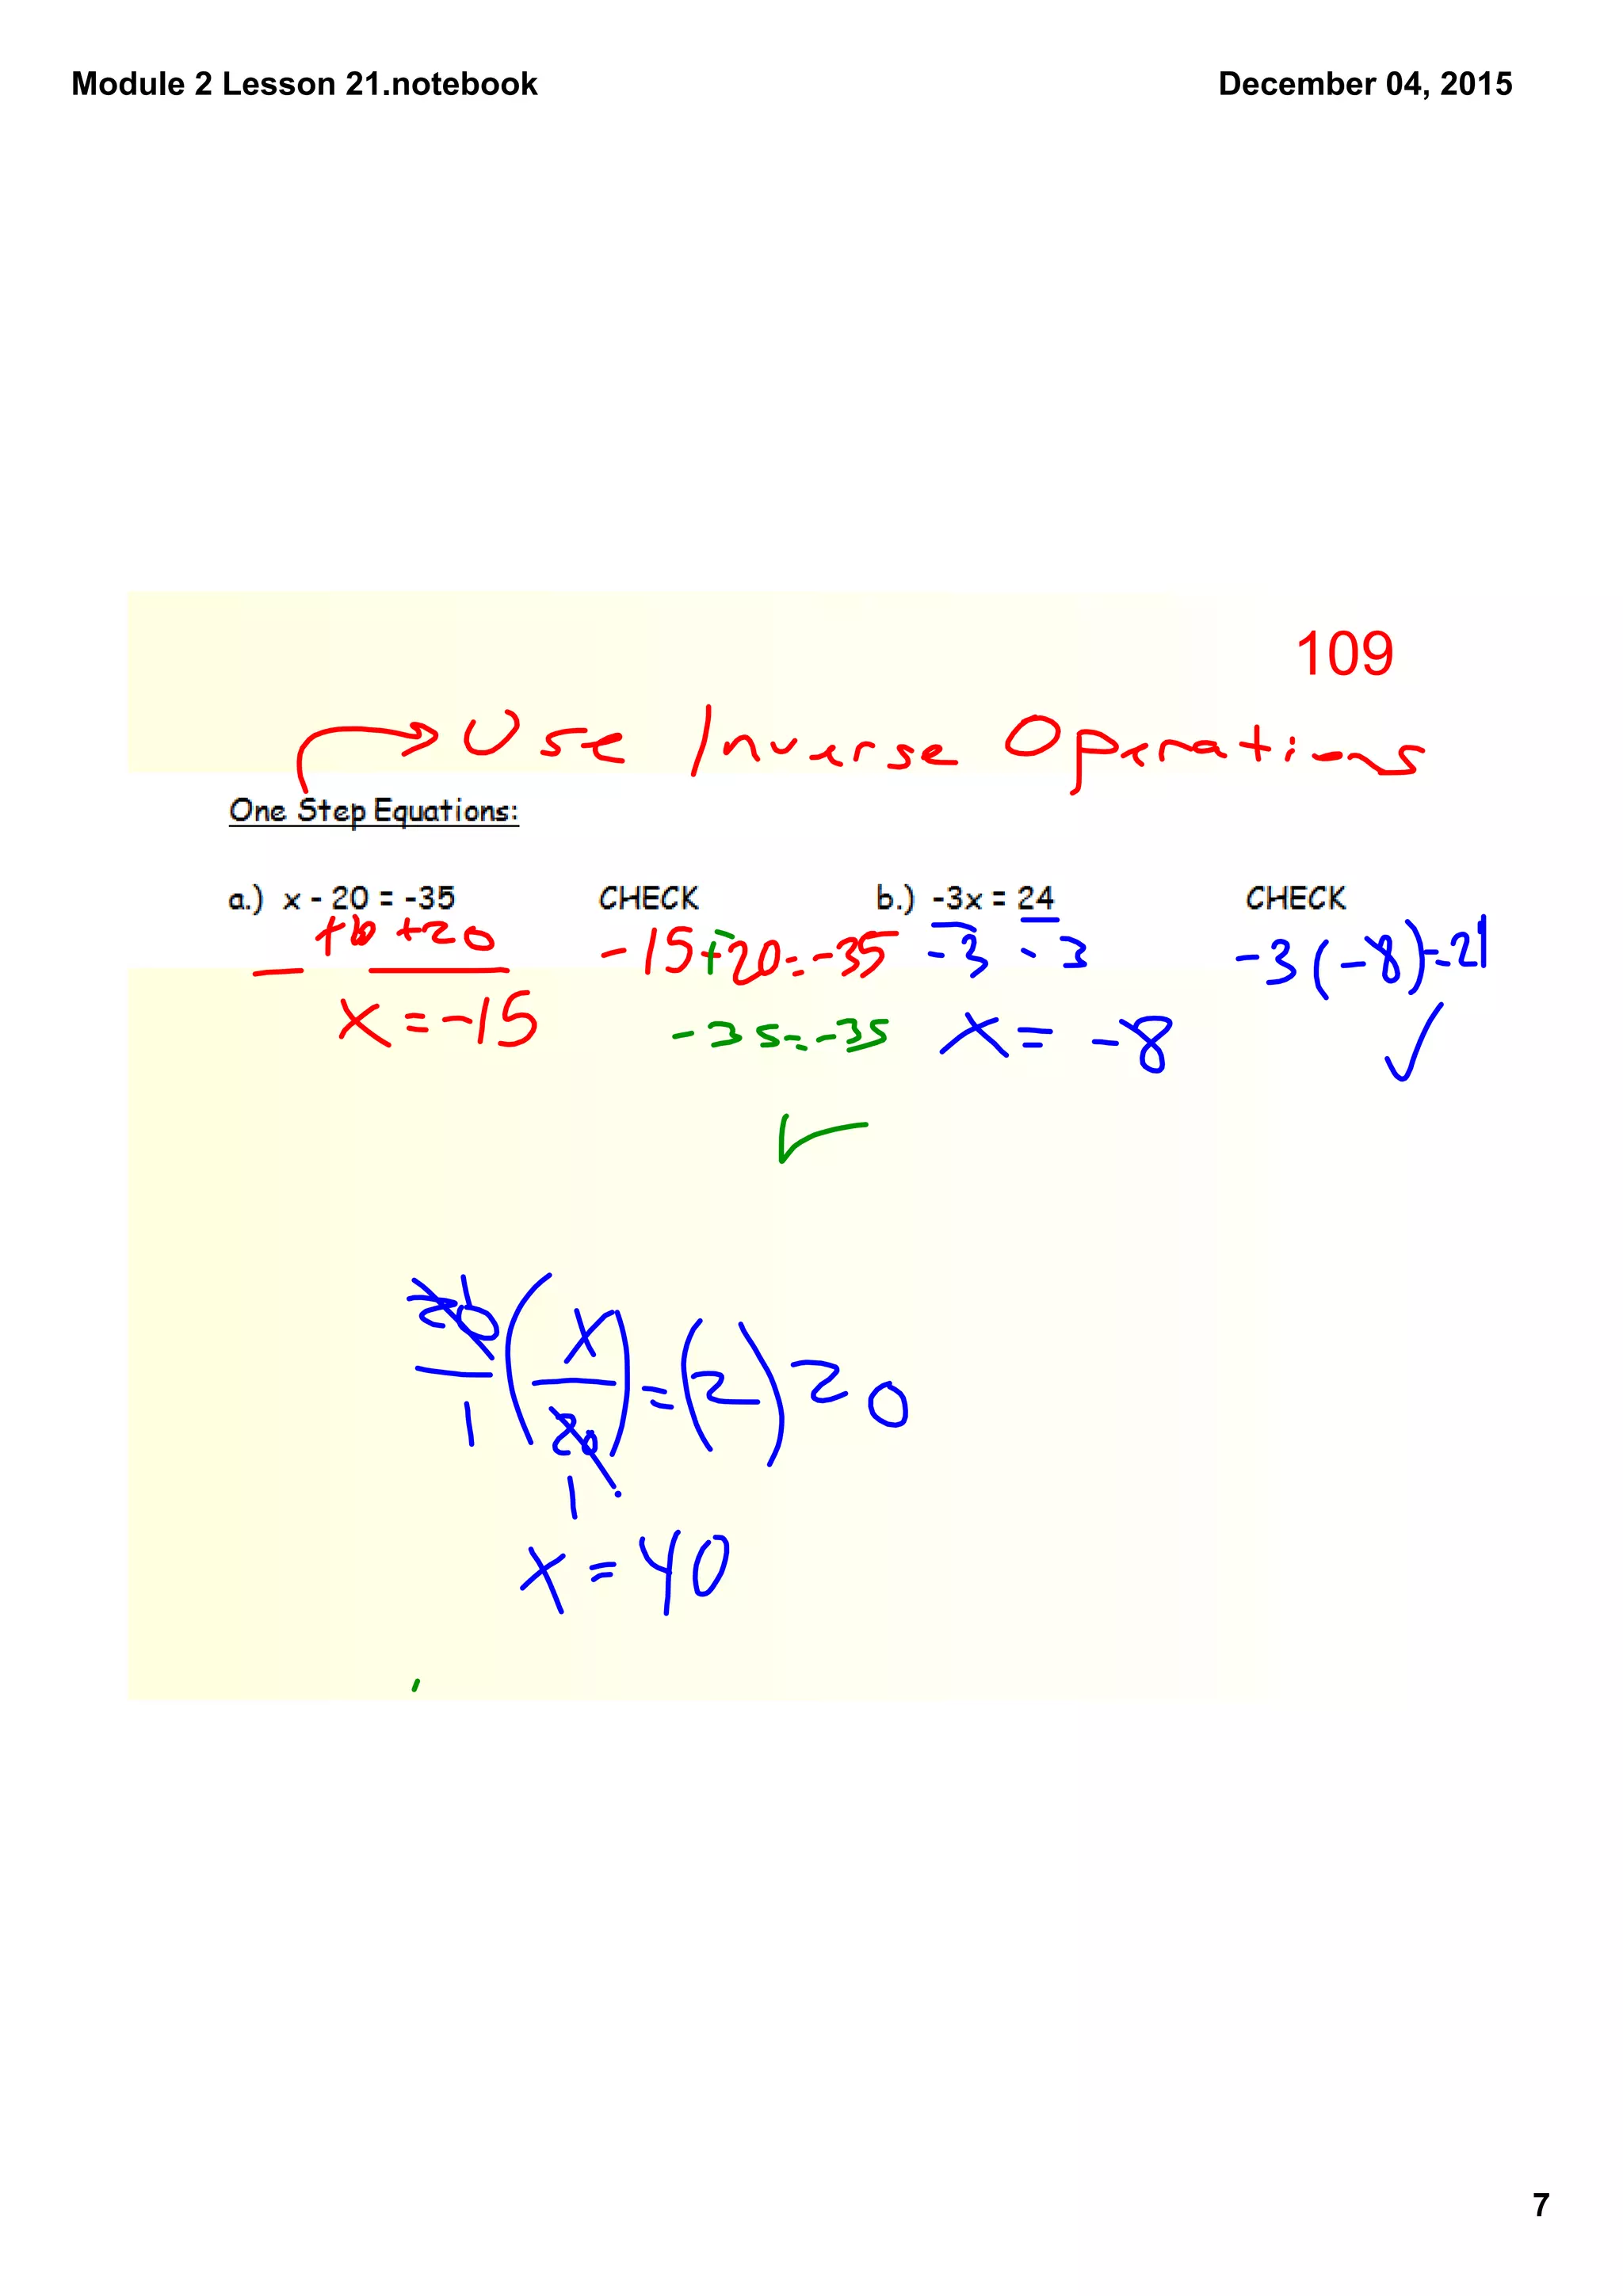 Module 2 Lesson 21.notebook December 04, 2015
109
Use Inverse Operations
One Step Equations:
a.) x - 20 = -35 CHECK b.) -3x = 24 CHECK
+20 +20 -15 + -20 = -35 -3 -3 -3(-8)=24
x = -15 -35 = -35 x = -8 ✓
✓
20/1 (x/20) = (2) 20
1
x = 40
7